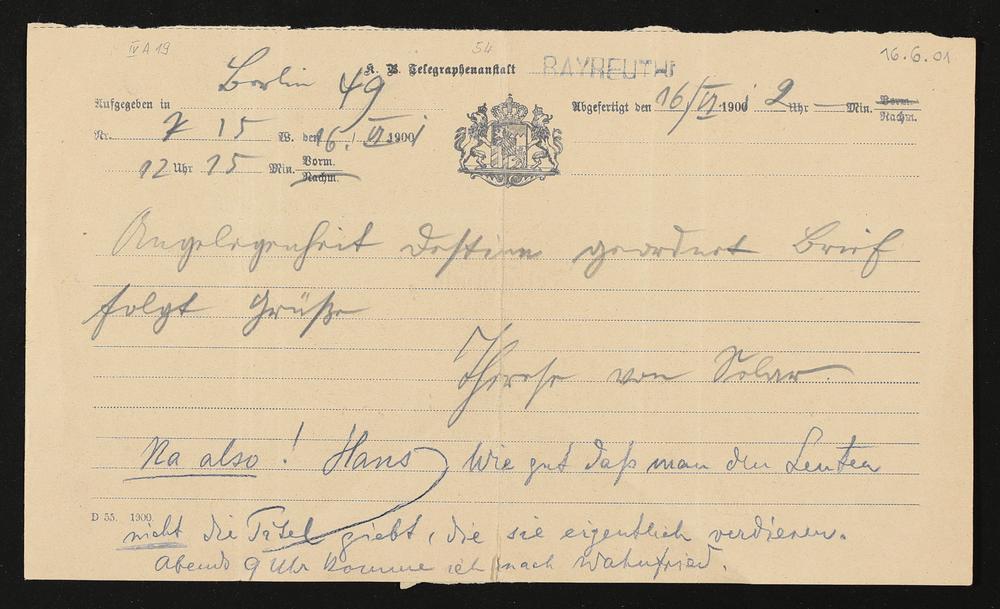 IV A 19
54
16.6.01
K. B. Telegraphenanstalt BAYREUTH
Berlin 49
Aufgegeben in
Abgefertigt den 16/VI 1901 2 Uhr — Min. Vorm. Nachm.
Nr. 7 15 W. den 16./VI 1901
12 Uhr 15 Min. Vorm. Nachm.
Angelegenheit Destinn geordnet Brief
folgt Grüße
Therese von
Na also! Hans Wie gut daß man den Leuten
D 55. 1900.
nicht die Titel giebt, die sie eigentlich verdienen.
Abends 9 Uhr komme ich nach Wahnfried.